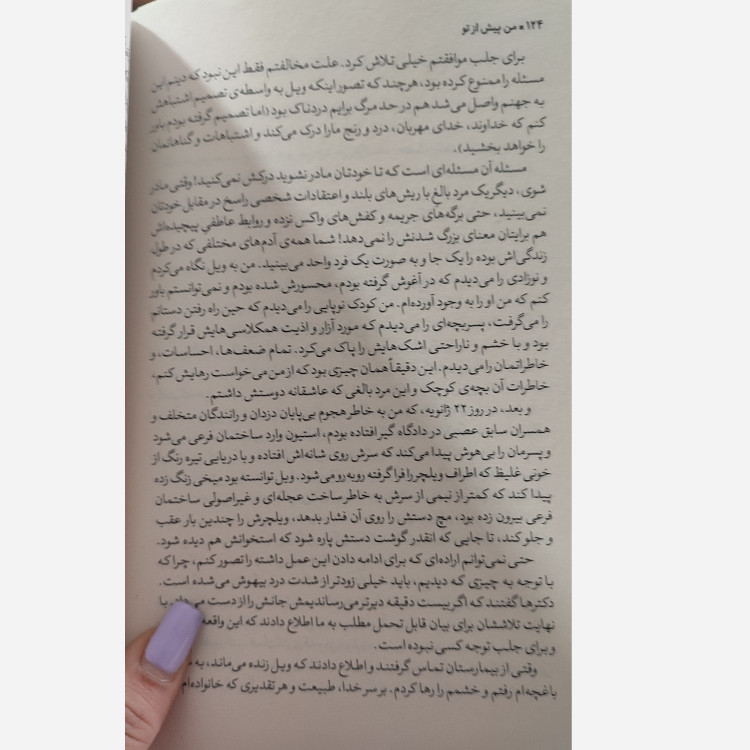 ۱۲۴ ■ من پیش از تو
برای جلب موافقتم خیلی تلاش کرد. علت مخالفتم فقط این نبود که دینم این
مسئله را ممنوع کرده بود، هرچند که تصور اینکه ویل به واسطه‌ی تصمیم اشتباهش
به جهنم واصل می‌شد هم در حد مرگ برایم دردناک بود (اما تصمیم گرفته بودم باور
کنم که خداوند، خدای مهربان، درد و رنج ما را درک می‌کند و اشتباهات و گناهانمان
را خواهد بخشید).
مسئله آن مسئله‌ای است که تا خودتان مادر نشوید درکش نمی‌کنید! وقتی مادر
شوی، دیگر یک مرد بالغ با ریش‌های بلند و اعتقادات شخصی راسخ در مقابل خودتان
نمی‌بینید، حتی برگه‌های جریمه و کفش‌های واکس نزده و روابط عاطفی پیچیده‌اش
هم برایتان معنای بزرگ شدنش را نمی‌دهد! شما همه‌ی آدم‌های مختلفی که در طول
زندگی‌اش بوده را یک جا و به صورت یک فرد واحد می‌بینید. من به ویل نگاه می‌کردم
و نوزادی را می‌دیدم که در آغوش گرفته بودم، محسورش شده بودم و نمی‌توانستم باور
کنم که من او را به وجود آورده‌ام. من کودک نوپایی را می‌دیدم که حین راه رفتن دستانم
را می‌گرفت، پسربچه‌ای را می‌دیدم که مورد آزار و اذیت همکلاسی‌هایش قرار گرفته
بود و با خشم و ناراحتی اشک‌هایش را پاک می‌کرد. تمام ضعف‌ها، احساسات، و
خاطراتمان را می‌دیدم. این دقیقاً همان چیزی بود که از من می‌خواست رهایش کنم،
خاطرات آن بچه‌ی کوچک و این مرد بالغی که عاشقانه دوستش داشتم.
و بعد، در روز ۲۲ ژانویه، که من به خاطر هجوم بی‌پایان دزدان و رانندگان متخلف و
همسران سابق عصبی در دادگاه گیر افتاده بودم، استیون وارد ساختمان فرعی می‌شود
و پسرمان را بی‌هوش پیدا می‌کند که سرش روی شانه‌اش افتاده و با دریایی تیره رنگ از
خونی غلیظ که اطراف ویلچر را فرا گرفته روبه‌رو می‌شود. ویل توانسته بود میخی زنگ زده
پیدا کند که کمتر از نیمی از سرش به خاطر ساخت عجله‌ای و غیراصولی ساختمان
فرعی بیرون زده بود، مچ دستش را روی آن فشار بدهد، ویلچرش را چندین بار عقب
و جلو کند، تا جایی که انقدر گوشت دستش پاره شود که استخوانش هم دیده شود.
حتی نمی‌توانم اراده‌ای که برای ادامه دادن این عمل داشته را تصور کنم، چرا که
با توجه به چیزی که دیدیم، باید خیلی زودتر از شدت درد بیهوش می‌شده است.
دکترها گفتند که اگر بیست دقیقه دیرتر می‌رساندیمش جانش را از دست
نهایت تلاششان برای بیان قابل تحمل مطلب به ما اطلاع دادند که این واقعه
و برای جلب توجه کسی نبوده است.
وقتی از بیمارستان تماس گرفتند و اطلاع دادند که ویل زنده می‌ماند، به
باغچه‌ام رفتم و خشمم را رها کردم. بر سر خدا، طبیعت و هر تقدیری که خانواده‌ام